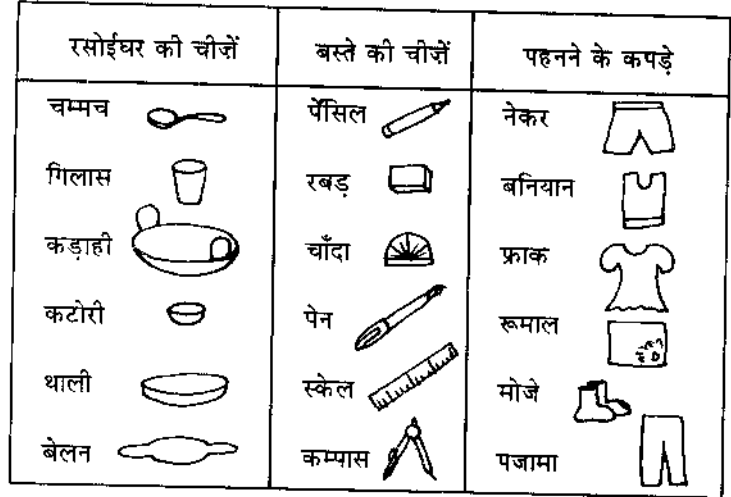 रसोईघर की चीज़ें बस्ते की चीज़ें पहनने के कपड़े
चम्मच पेंसिल नेकर
गिलास रबड़ बनियान
कड़ाही चाँदा फ्राक
कटोरी पेन रूमाल
थाली स्केल मोजे
बेलन कम्पास पजामा